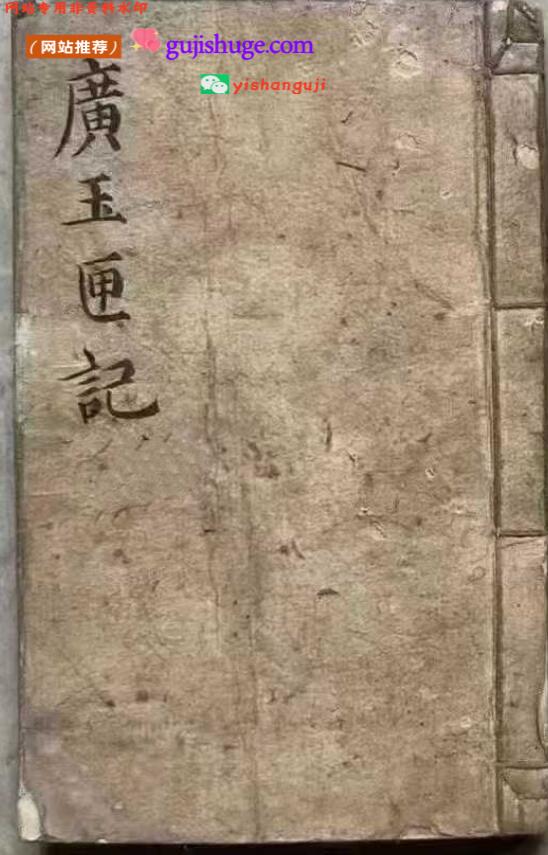 网站专用非资料水印
（网站推荐）
gujishuge.com
yishanguji
廣玉匣記